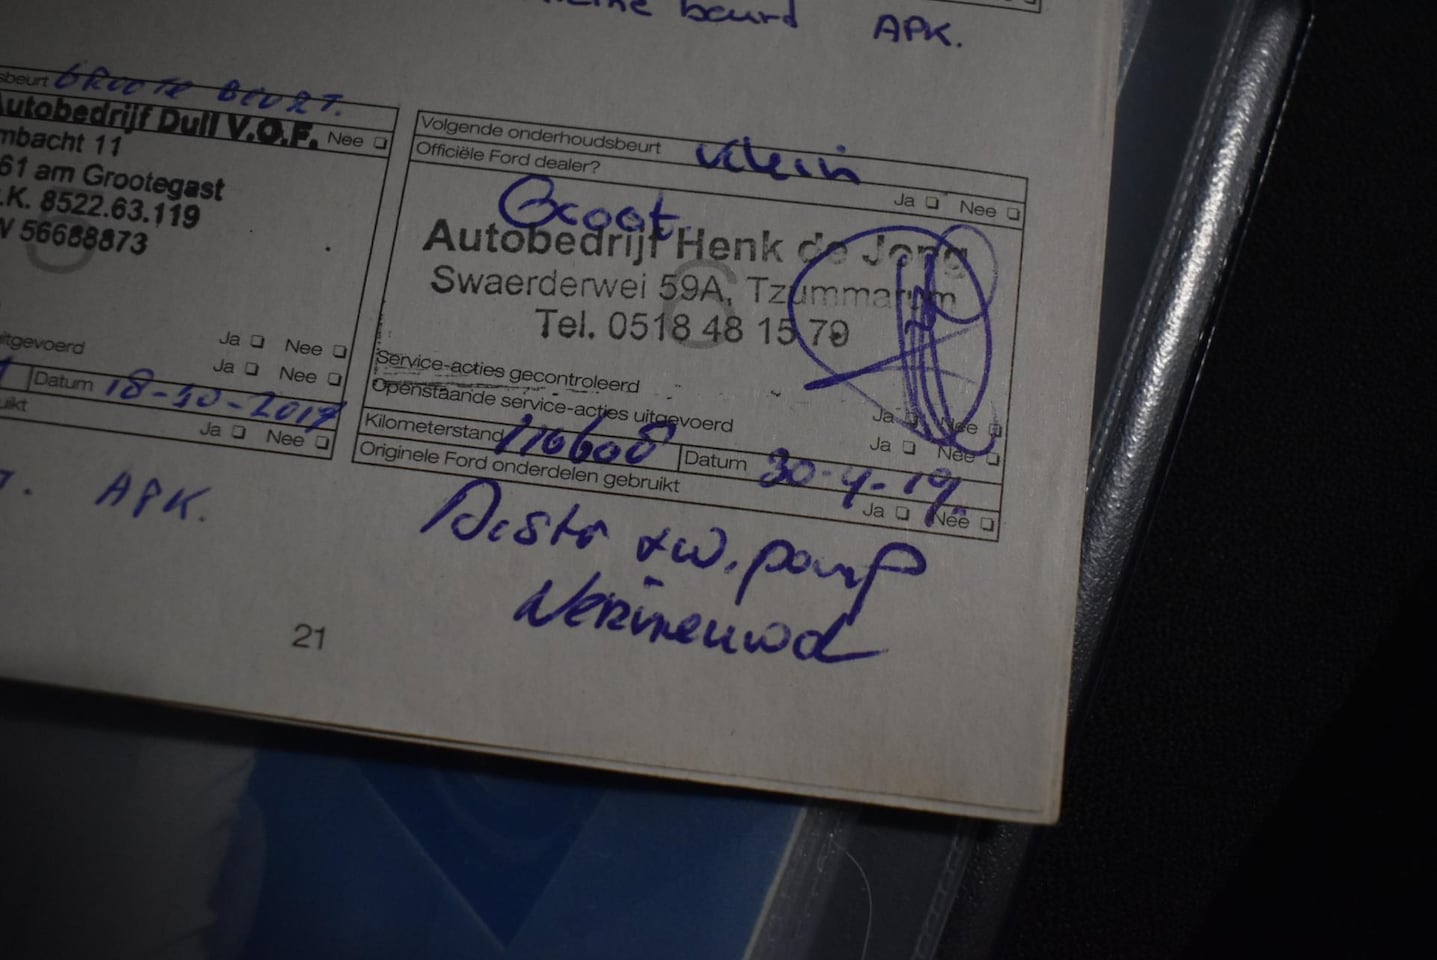 beurd APK.
sbeurt GROOTE BEURT.
Autobedrijf Dull V.O.F.
Nee
mbacht 11
61 am Grootegast
.K. 8522.63.119
V 56688873
Ja Nee
itgevoerd Ja Nee
Datum 18-10-2017
uikt Ja Nee
T. APK.
Volgende onderhoudsbeurt klein
Officiële Ford dealer? Ja Nee
Groot
Autobedrijf Henk de Jong
Swaerderwei 59A, Tzummarum
Tel. 0518 48 15 79
Service-acties gecontroleerd Ja Nee
Openstaande service-acties uitgevoerd Ja Nee
Kilometerstand 110608 Datum 30-4-19.
Originele Ford onderdelen gebruikt Ja Nee
Distr + w. pomp
Vernieuwd
21